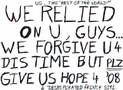 US.. "THE REST OF THE WORLD"
WE RELIED
ON U, GUYS...
WE FORGIVE U 4
DIS TIME BUT PLZ
GIVE US HOPE 4 '08
A DESPERATED FRENCH GIRL